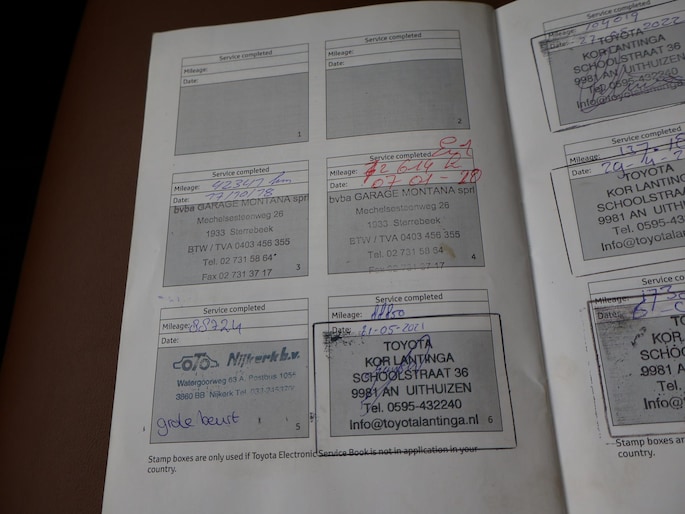 Service completed
Mileage:
Date:
1
Service completed
Mileage:
Date:
2
Service completed
Mileage: 42347 km
Date:
bvba GARAGE MONTANA sprl
Mechelsesteenweg 26
1933 Sterrebeek
BTW / TVA 0403 456 355
Tel. 02 731 58 64
Fax 02 731 37 17
3
Service completed
Mileage:
Date: 07-01-20
bvba GARAGE MONTANA sprl
Mechelsesteenweg 26
1933 Sterrebeek
BTW / TVA 0403 456 355
Tel. 02 731 58 64
Fax 02 731 37 17
4
Service completed
Mileage: 88724
Date:
Nijkerk b.v.
Watergoorweg 63 A, Postbus
3860 BB Nijkerk Tel.
grote beurt
5
Service completed
Mileage:
Date: 21-05-2021
TOYOTA
KOR LANTINGA
SCHOOLSTRAAT 36
9981 AN UITHUIZEN
Tel. 0595-432240
Info@toyotalantinga.nl
6
Stamp boxes are only used if Toyota Electronic Service Book is not in application in your
country.
Service completed
Mileage:
Date:
TOYOTA
KOR LANTINGA
SCHOOLSTRAAT 36
9981 AN UITHUIZEN
Tel. 0595-432240
Info@toyotalantinga.nl
Service completed
Mileage:
Date:
TOYOTA
KOR LANTINGA
SCHOOLSTRAAT
9981 AN UITHUIZEN
Tel. 0595-43224
Info@toyotalantinga
Service co
Mileage:
Date:
TO
KOR LA
SCHOO
9981 A
Tel.
Info@
Stamp boxes are
country.